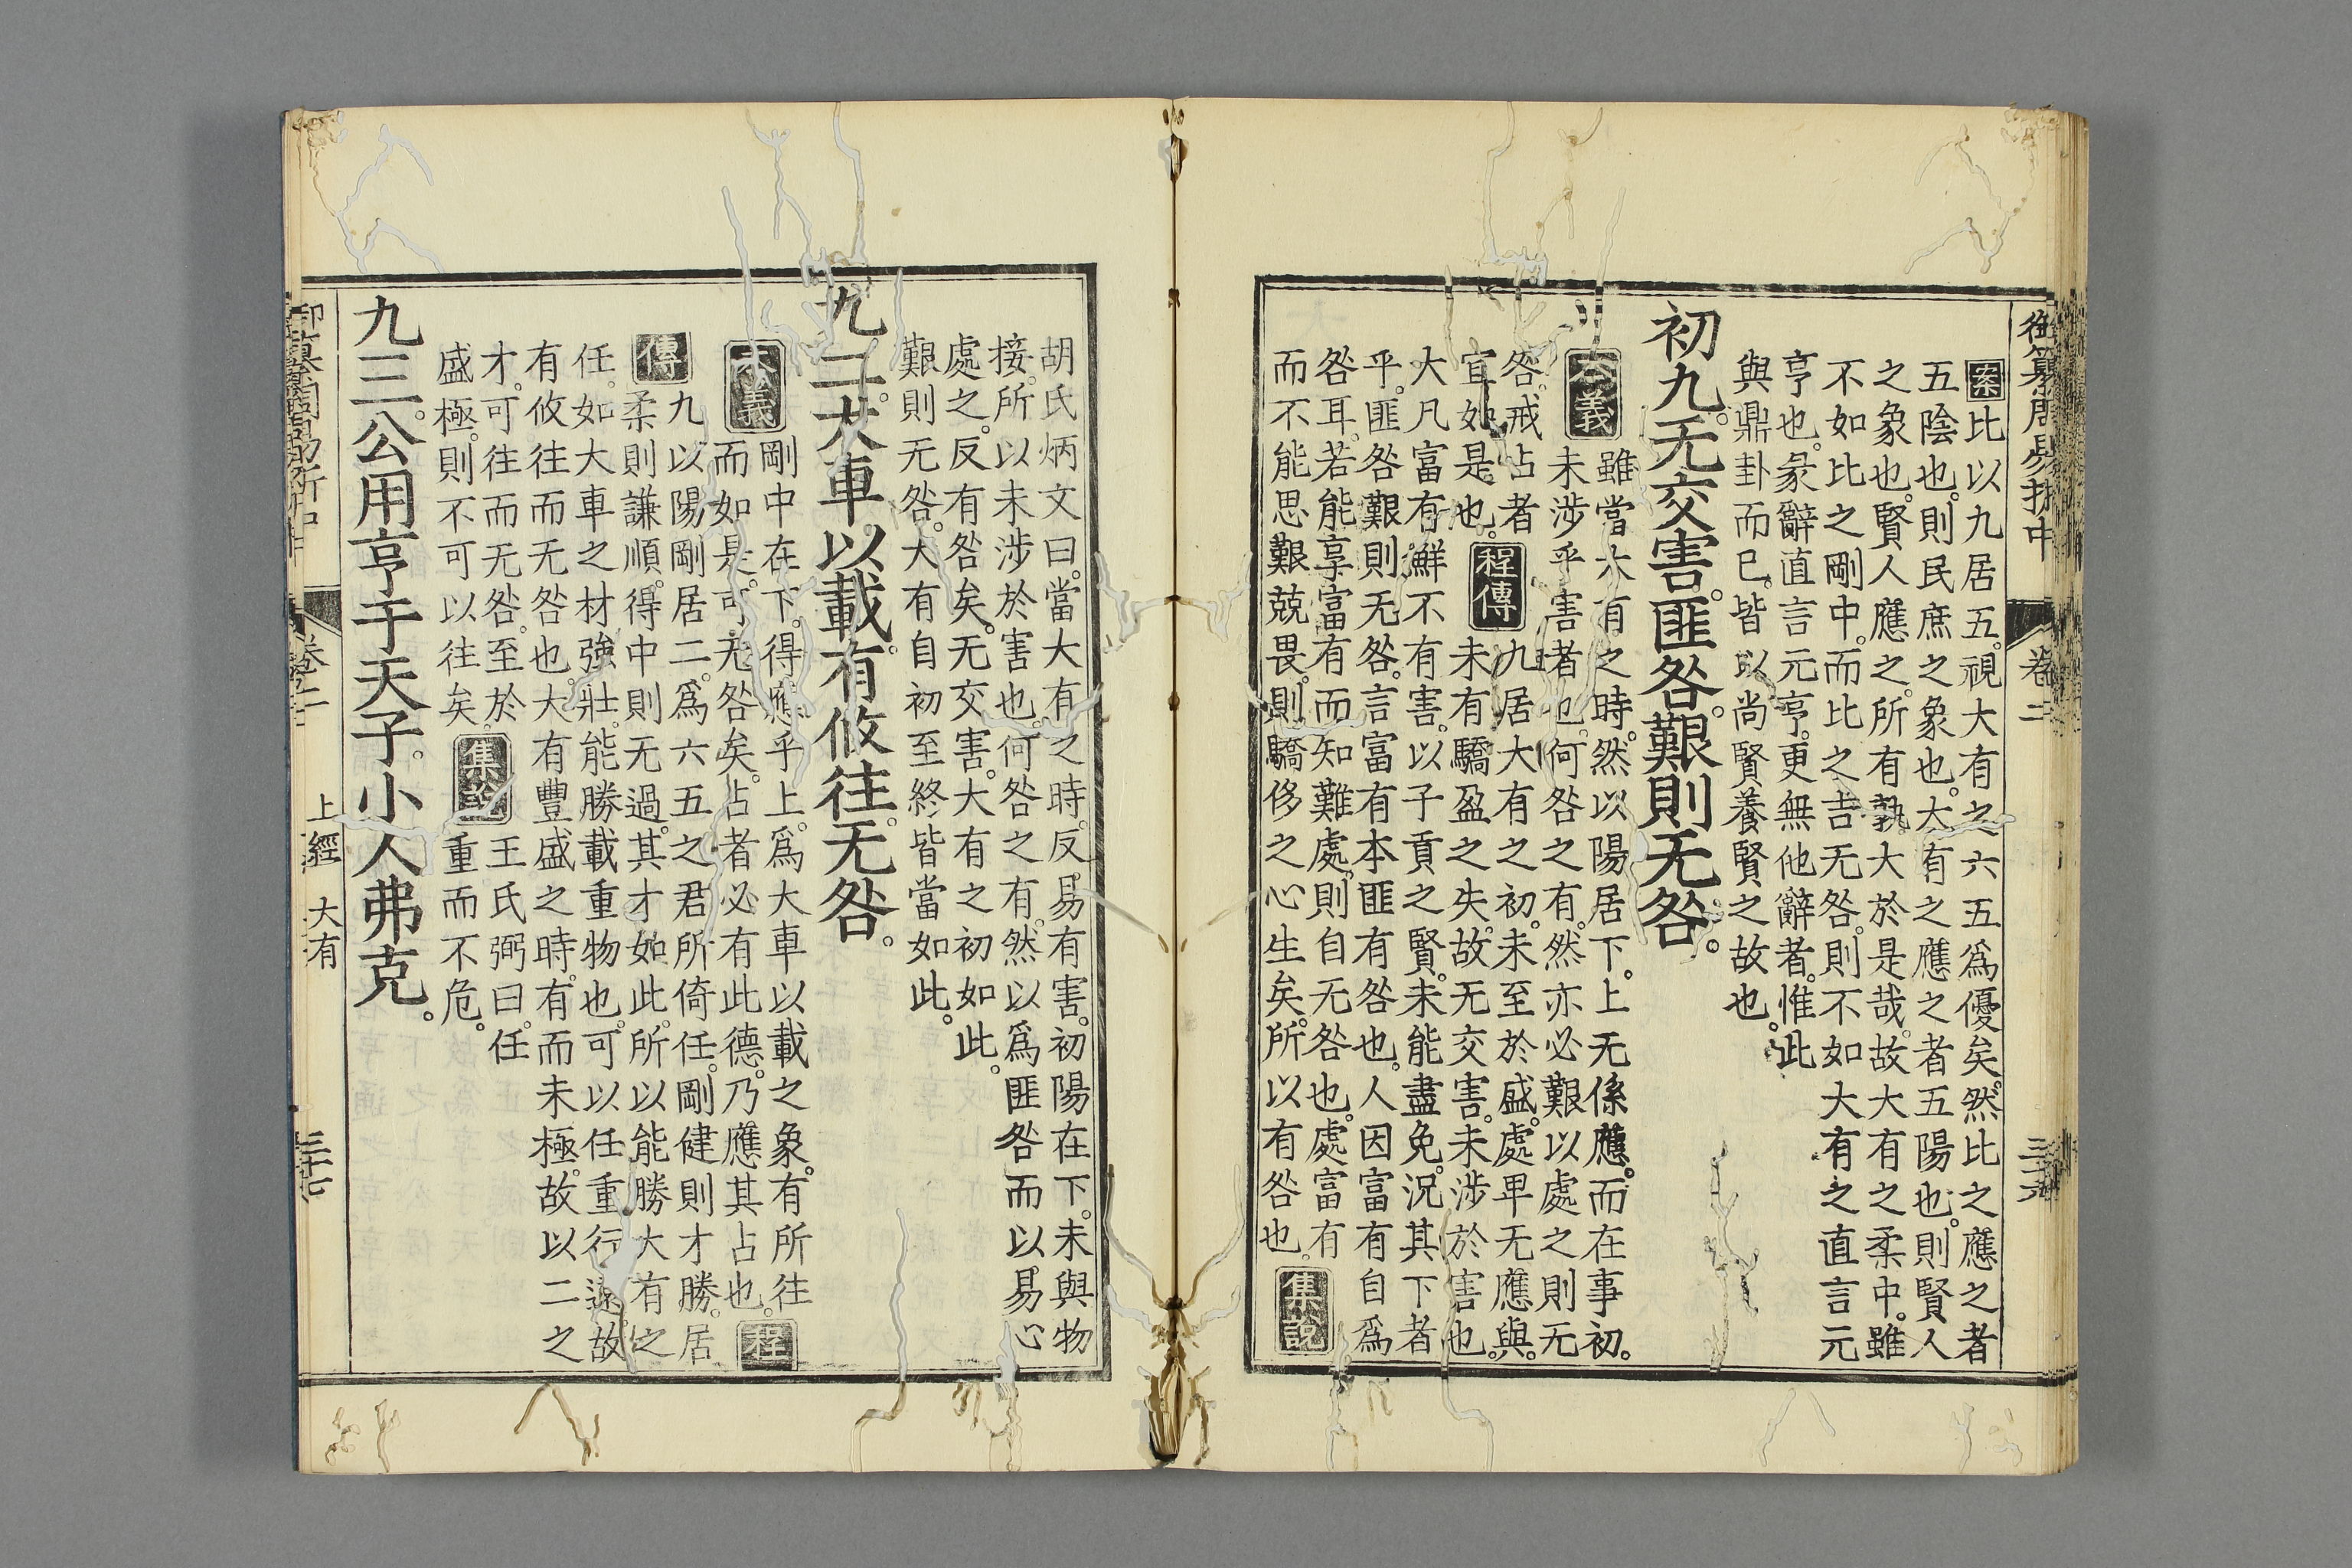 御纂周易折中 卷二 三十六
案比以九居五。視大有之六五爲優矣。然比之應之者
五陰也。則民庶之象也。大有之應之者五陽也。則賢人
之象也。賢人應之。所有孰大於是哉。故大有之柔中。雖
不如比之剛中。而比之吉无咎。則不如大有之直言元
亨也。彖辭直言元亨。更無他辭者。惟此
與鼎卦而已。皆以尚賢養賢之故也。
初九。无交害。匪咎。艱則无咎。
本義雖當大有之時。然以陽居下。上无係應。而在事初。
未涉乎害者也。何咎之有。然亦必艱以處之則无
咎。戒占者
宜如是也。程傳九居大有之初。未至於盛。處卑无應與。
未有驕盈之失。故无交害。未涉於害也。
大凡富有鮮不有害。以子貢之賢。未能盡免。況其下者
乎。匪咎艱則无咎。言富有本匪有咎也。人因富有自爲
咎耳。若能享富有而知難處。則自无咎也。處富有
而不能思艱兢畏。則驕侈之心生矣。所以有咎也。集說
胡氏炳文曰。當大有之時。反易有害。初陽在下。未與物
接。所以未涉於害也。何咎之有。然以爲匪咎而以易心
處之。反有咎矣。无交害。大有之初如此。
艱則无咎。大有自初至終皆當如此。
九二。大車以載。有攸往。无咎。
本義剛中在下。得應乎上。爲大車以載之象。有所往
而如是。可无咎矣。占者必有此德。乃應其占也。程
傳九以陽剛居二。爲六五之君所倚任。剛健則才勝。居
柔則謙順。得中則无過。其才如此。所以能勝大有之
任。如大車之材強壯。能勝載重物也。可以任重行遠。故
有攸往而无咎也。大有豐盛之時。有而未極。故以二之
才。可往而无咎。至於
盛極。則不可以往矣。集說王氏弼曰。任
重而不危。
九三。公用亨于天子。小人弗克。
卷二 上經 大有 三十七